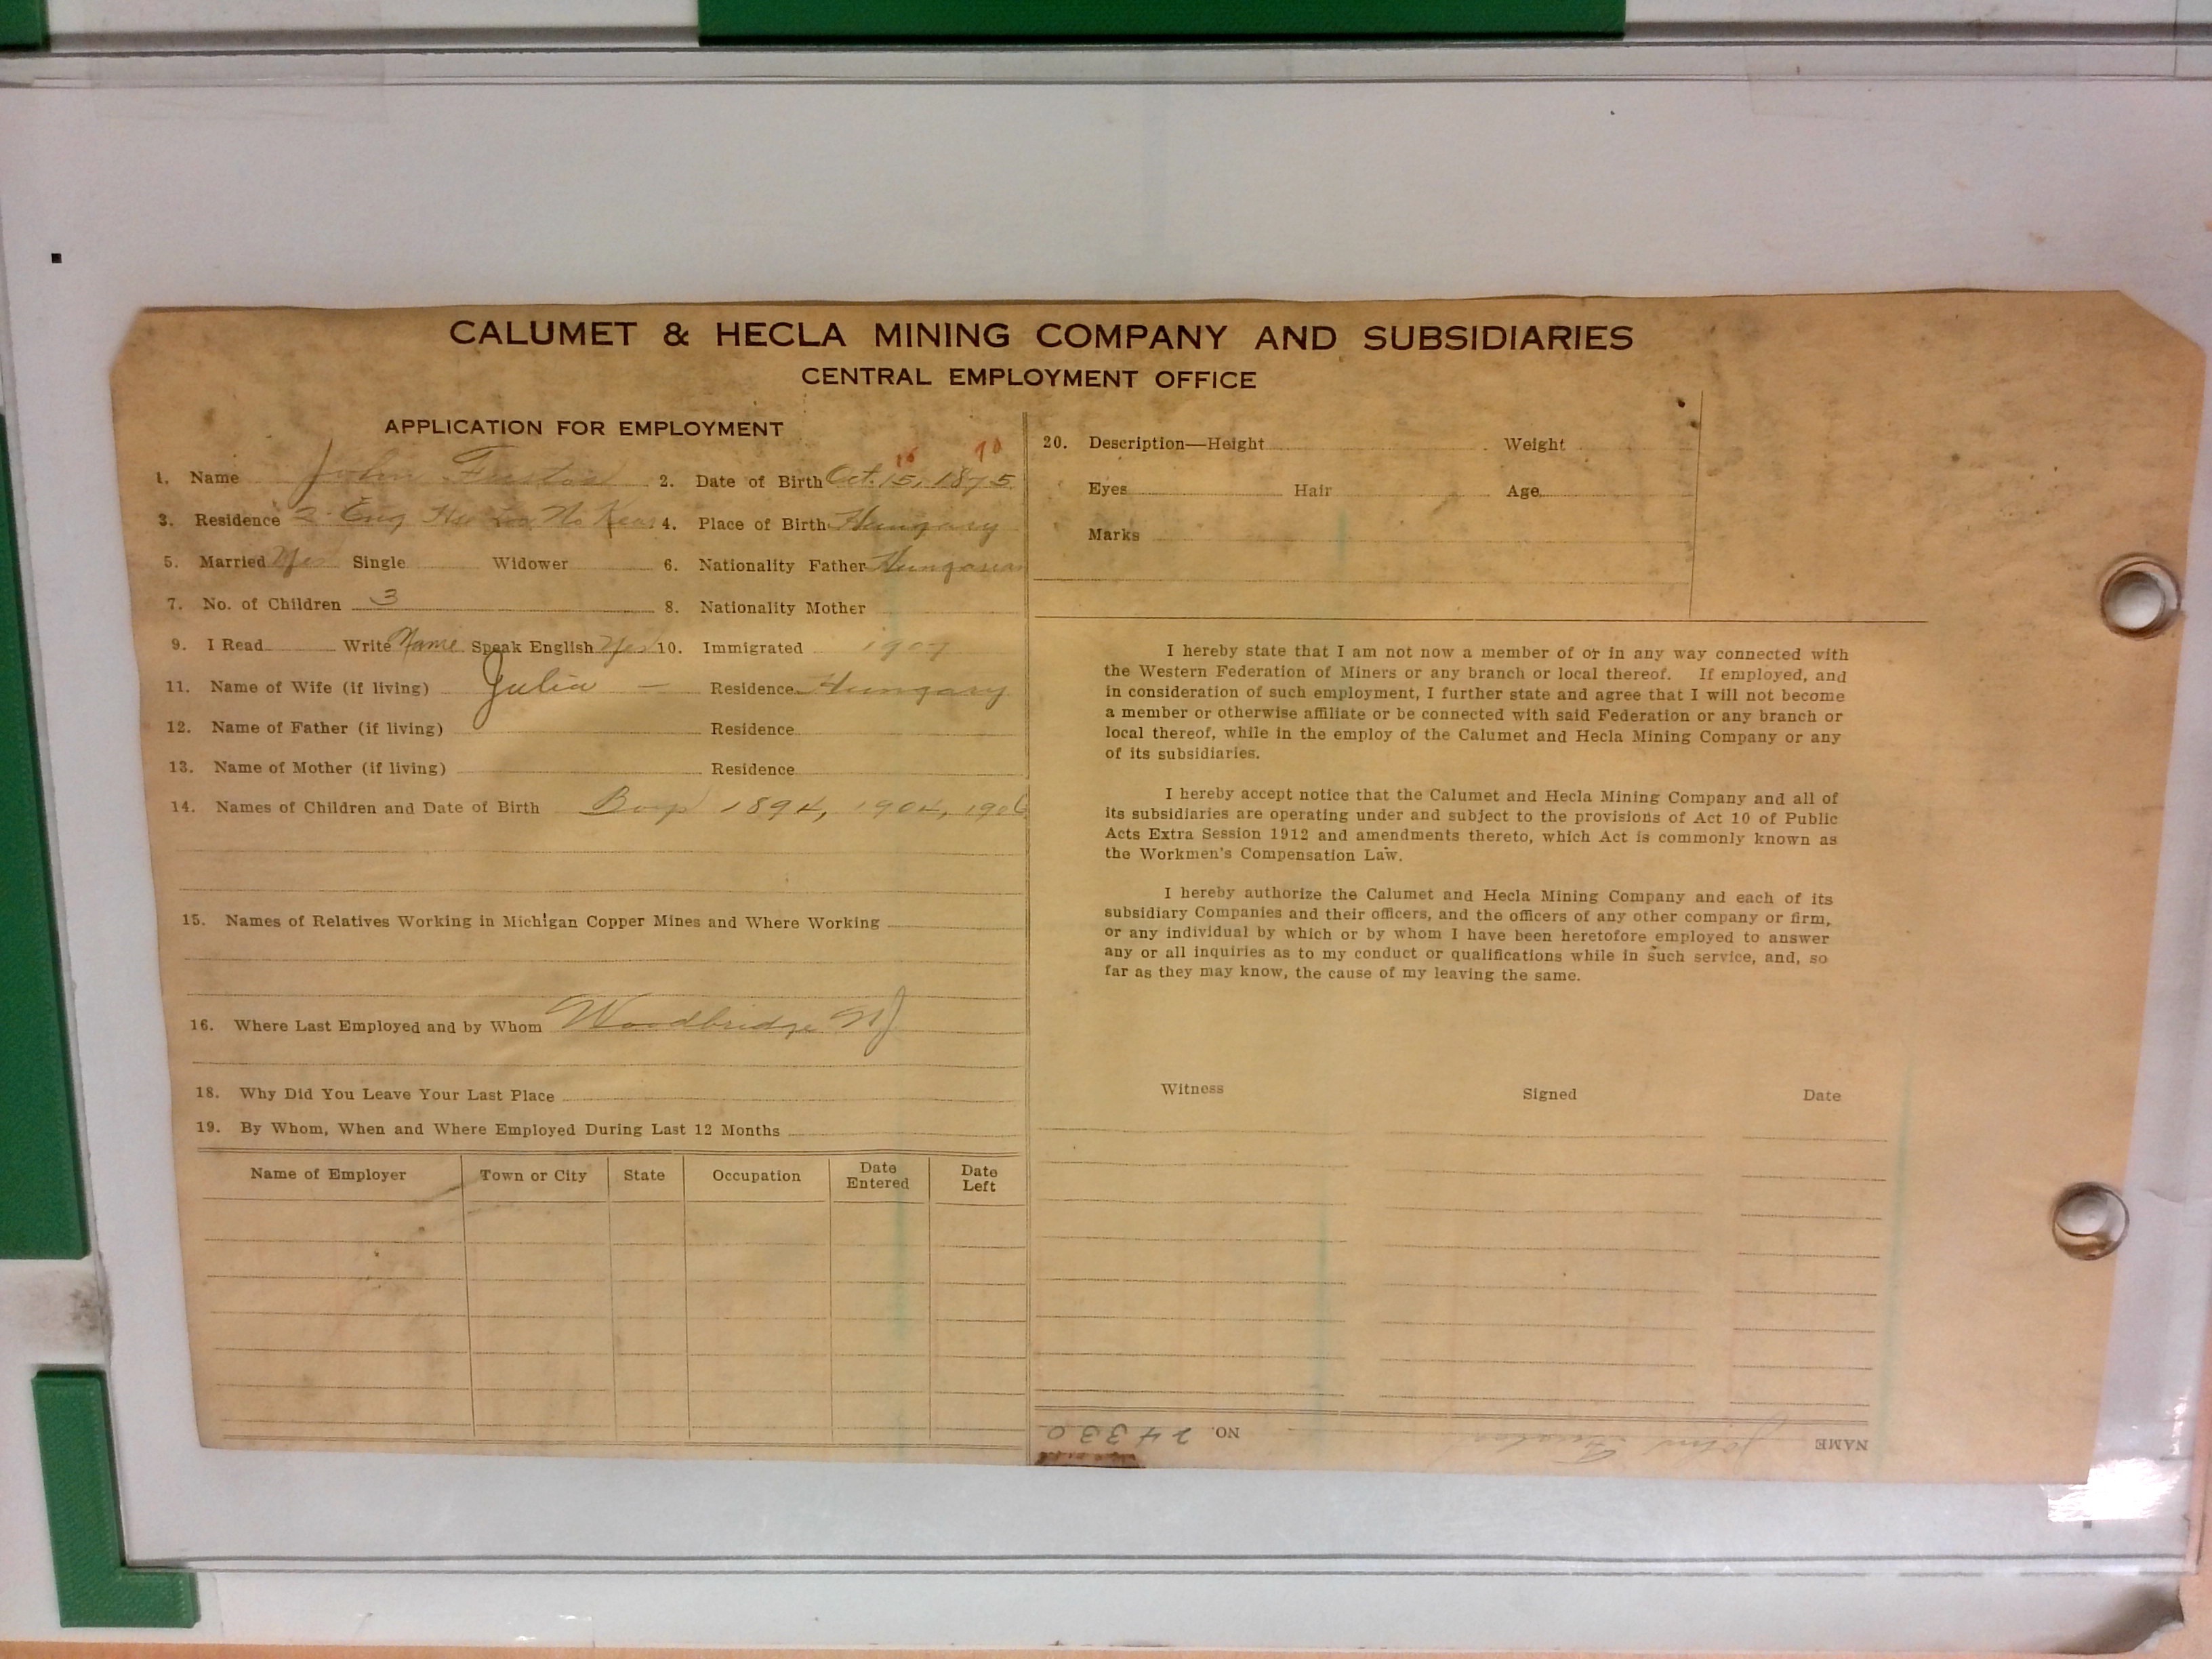 CALUMET & HECLA MINING COMPANY AND SUBSIDIARIES
CENTRAL EMPLOYMENT OFFICE
APPLICATION FOR EMPLOYMENT
1. Name John 2. Date of Birth Oct. 15, 1875
3. Residence 2 4. Place of Birth Hungary
5. Married Yes Single Widower 6. Nationality Father Hungarian
7. No. of Children 3 8. Nationality Mother
9. I Read Write Name Speak English Yes 10. Immigrated 1907
11. Name of Wife (if living) Julia — Residence Hungary
12. Name of Father (if living) Residence
13. Name of Mother (if living) Residence
14. Names of Children and Date of Birth Boys 1894, 1904, 1906
15. Names of Relatives Working in Michigan Copper Mines and Where Working
16. Where Last Employed and by Whom Woodbridge NJ
18. Why Did You Leave Your Last Place
19. By Whom, When and Where Employed During Last 12 Months
Name of Employer Town or City State Occupation Date Entered Date Left
20. Description—Height Weight
Eyes Hair Age
Marks
I hereby state that I am not now a member of or in any way connected with
the Western Federation of Miners or any branch or local thereof. If employed, and
in consideration of such employment, I further state and agree that I will not become
a member or otherwise affiliate or be connected with said Federation or any branch or
local thereof, while in the employ of the Calumet and Hecla Mining Company or any
of its subsidiaries.
I hereby accept notice that the Calumet and Hecla Mining Company and all of
its subsidiaries are operating under and subject to the provisions of Act 10 of Public
Acts Extra Session 1912 and amendments thereto, which Act is commonly known as
the Workmen's Compensation Law.
I hereby authorize the Calumet and Hecla Mining Company and each of its
subsidiary Companies and their officers, and the officers of any other company or firm,
or any individual by which or by whom I have been heretofore employed to answer
any or all inquiries as to my conduct or qualifications while in such service, and, so
far as they may know, the cause of my leaving the same.
Witness Signed Date
NAME John NO. 24330